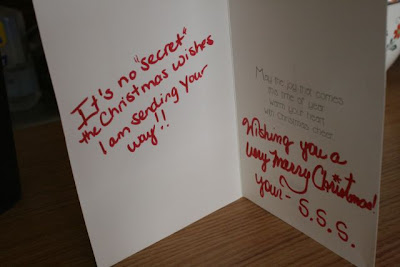 It's no "secret"
the Christmas wishes
I am sending your
way!!
May the joy that comes
this time of year
warm your heart
with christmas cheer
Wishing you a
very merry Christmas!
Your- S.S.S.